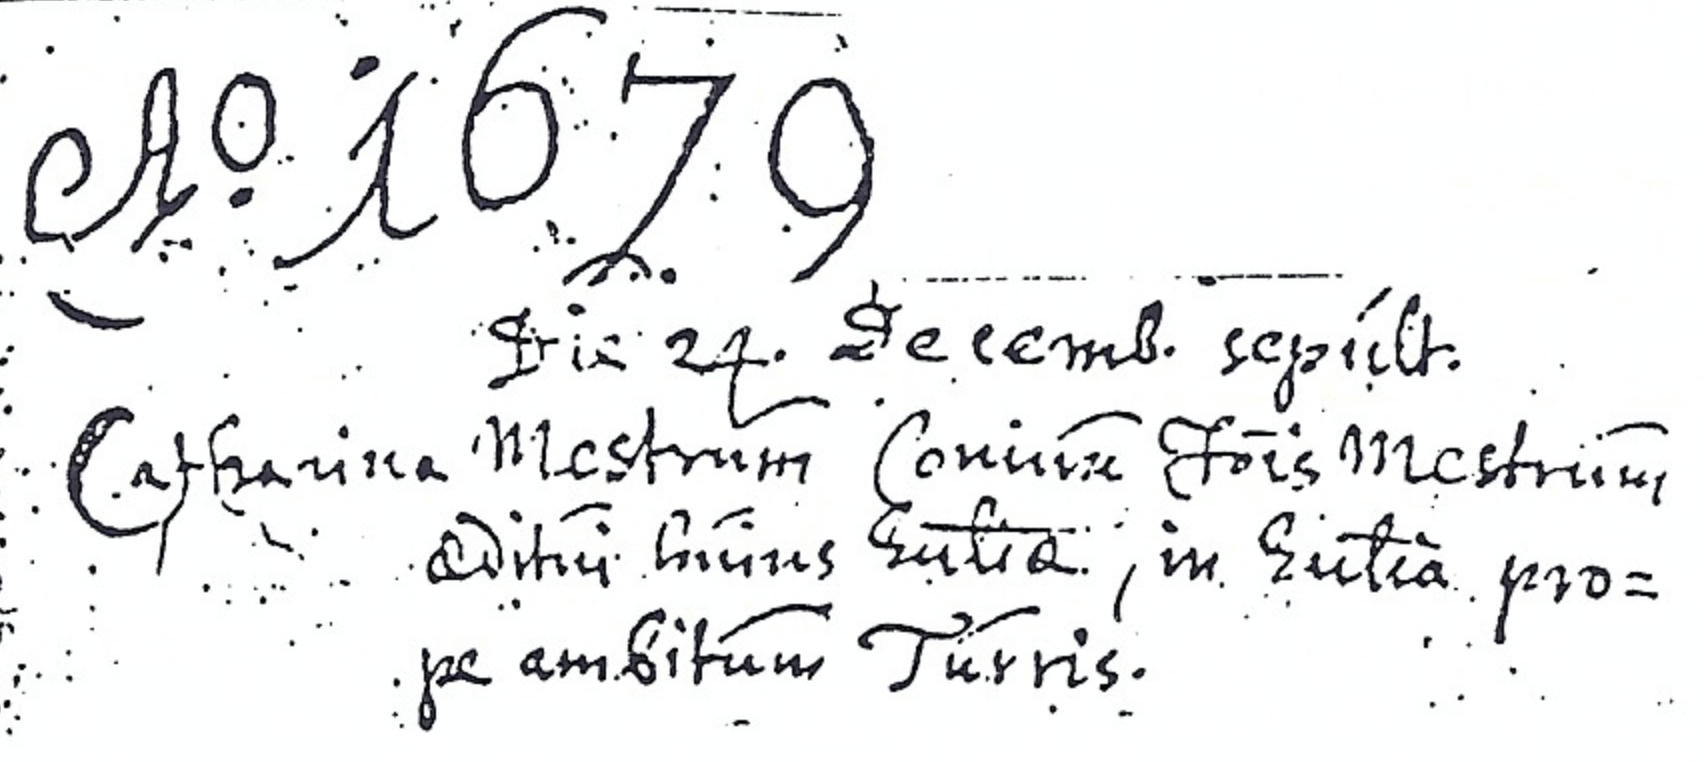 Aº. 1679
Die 24. Decemb. sepult.
Catharina Mestrum Coniux Jõis Mestrum
æditui huius Eccliæ, in Ecclia pro=
pe ambitum Turris.